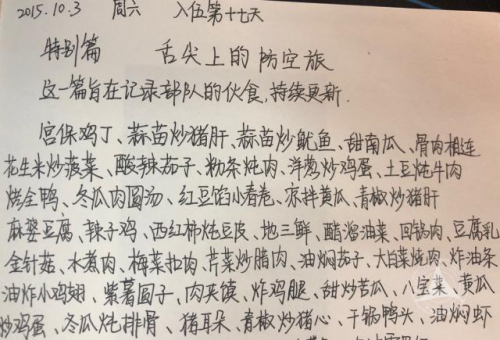 2015.10.3 周六 入伍第十七天
特别篇 舌尖上的防空旅
这一篇旨在记录部队的伙食,持续更新.
宫保鸡丁、蒜苗炒猪肝、蒜苗炒鱿鱼、甜南瓜、骨肉相连
花生米炒菠菜、酸辣茄子、粉条炖肉、洋葱炒鸡蛋、土豆炖牛肉
烤全鸭、冬瓜肉圆汤、红豆馅小春卷、凉拌黄瓜、青椒炒猪肝
麻婆豆腐、辣子鸡、西红柿炖豆皮、地三鲜、醋溜油菜、回锅肉、豆腐乳
金针菇、水煮肉、梅菜扣肉、芹菜炒腊肉、油焖茄子、大白菜烧肉、炸油条
油炸小鸡翅、紫薯圆子、肉夹馍、炸鸡腿、甜炒苦瓜、八宝菜、黄瓜
炒鸡蛋、冬瓜炖排骨、猪耳朵、青椒炒猪心、干锅鸭头、油焖虾